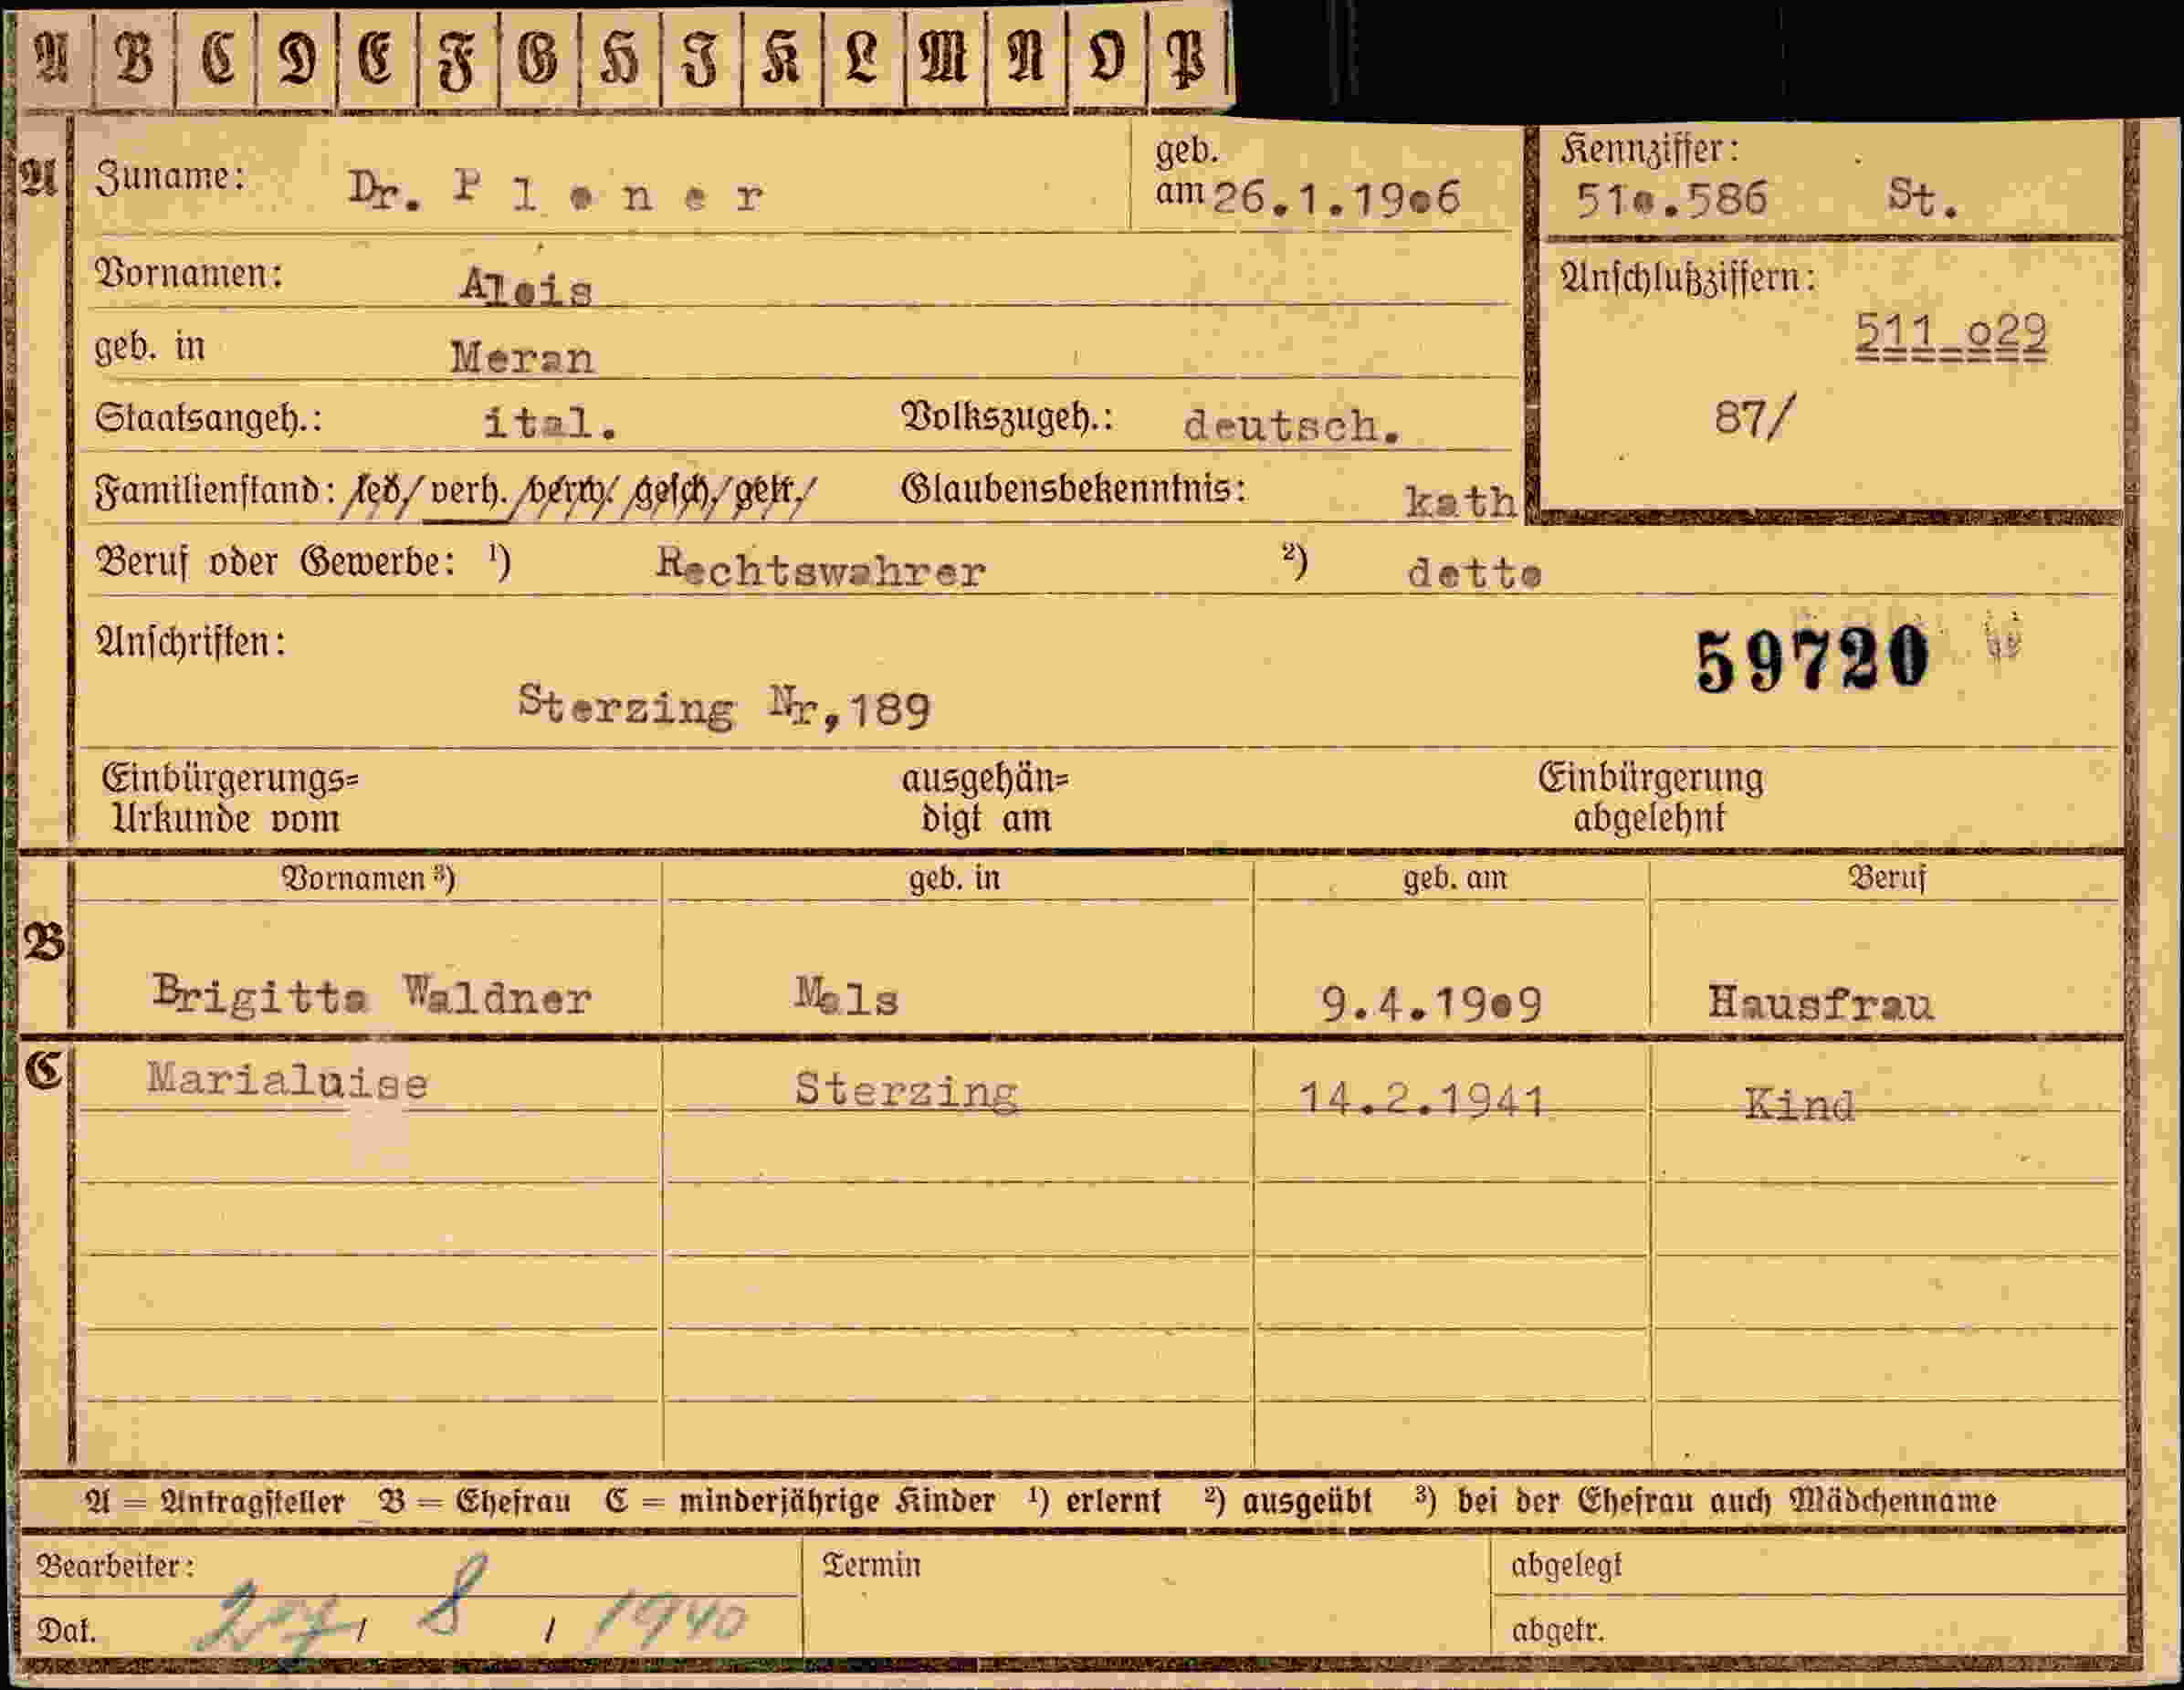 A B C D E F G H I K L M N O P
A Zuname: Dr. P l e n e r geb. am 26.1.19o6 Kennziffer: 51o.586 St.
Vornamen: Alois Anschlußziffern:
511 o29
geb. in Meran
Staatsangeh.: ital. Volkszugeh.: deutsch. 87/
Familienstand: led/ verh. /verw/ gesch,/ getr,/ Glaubensbekenntnis: kath
Beruf oder Gewerbe: ¹) Rechtswahrer ²) detto
Anschriften: 59720
Sterzing Nr,189
Einbürgerungs= ausgehän= Einbürgerung
Urkunde vom digt am abgelehnt
Vornamen ³) geb. in geb. am Beruf
B
Brigitta Waldner Mals 9.4.19o9 Hausfrau
C Marialuise Sterzing 14.2.1941 Kind
A = Antragsteller B = Ehefrau C = minderjährige Kinder ¹) erlernt ²) ausgeübt ³) bei der Ehefrau auch Mädchenname
Bearbeiter: Termin abgelegt
Dat. 27 / 8 / 1940 abgetr.